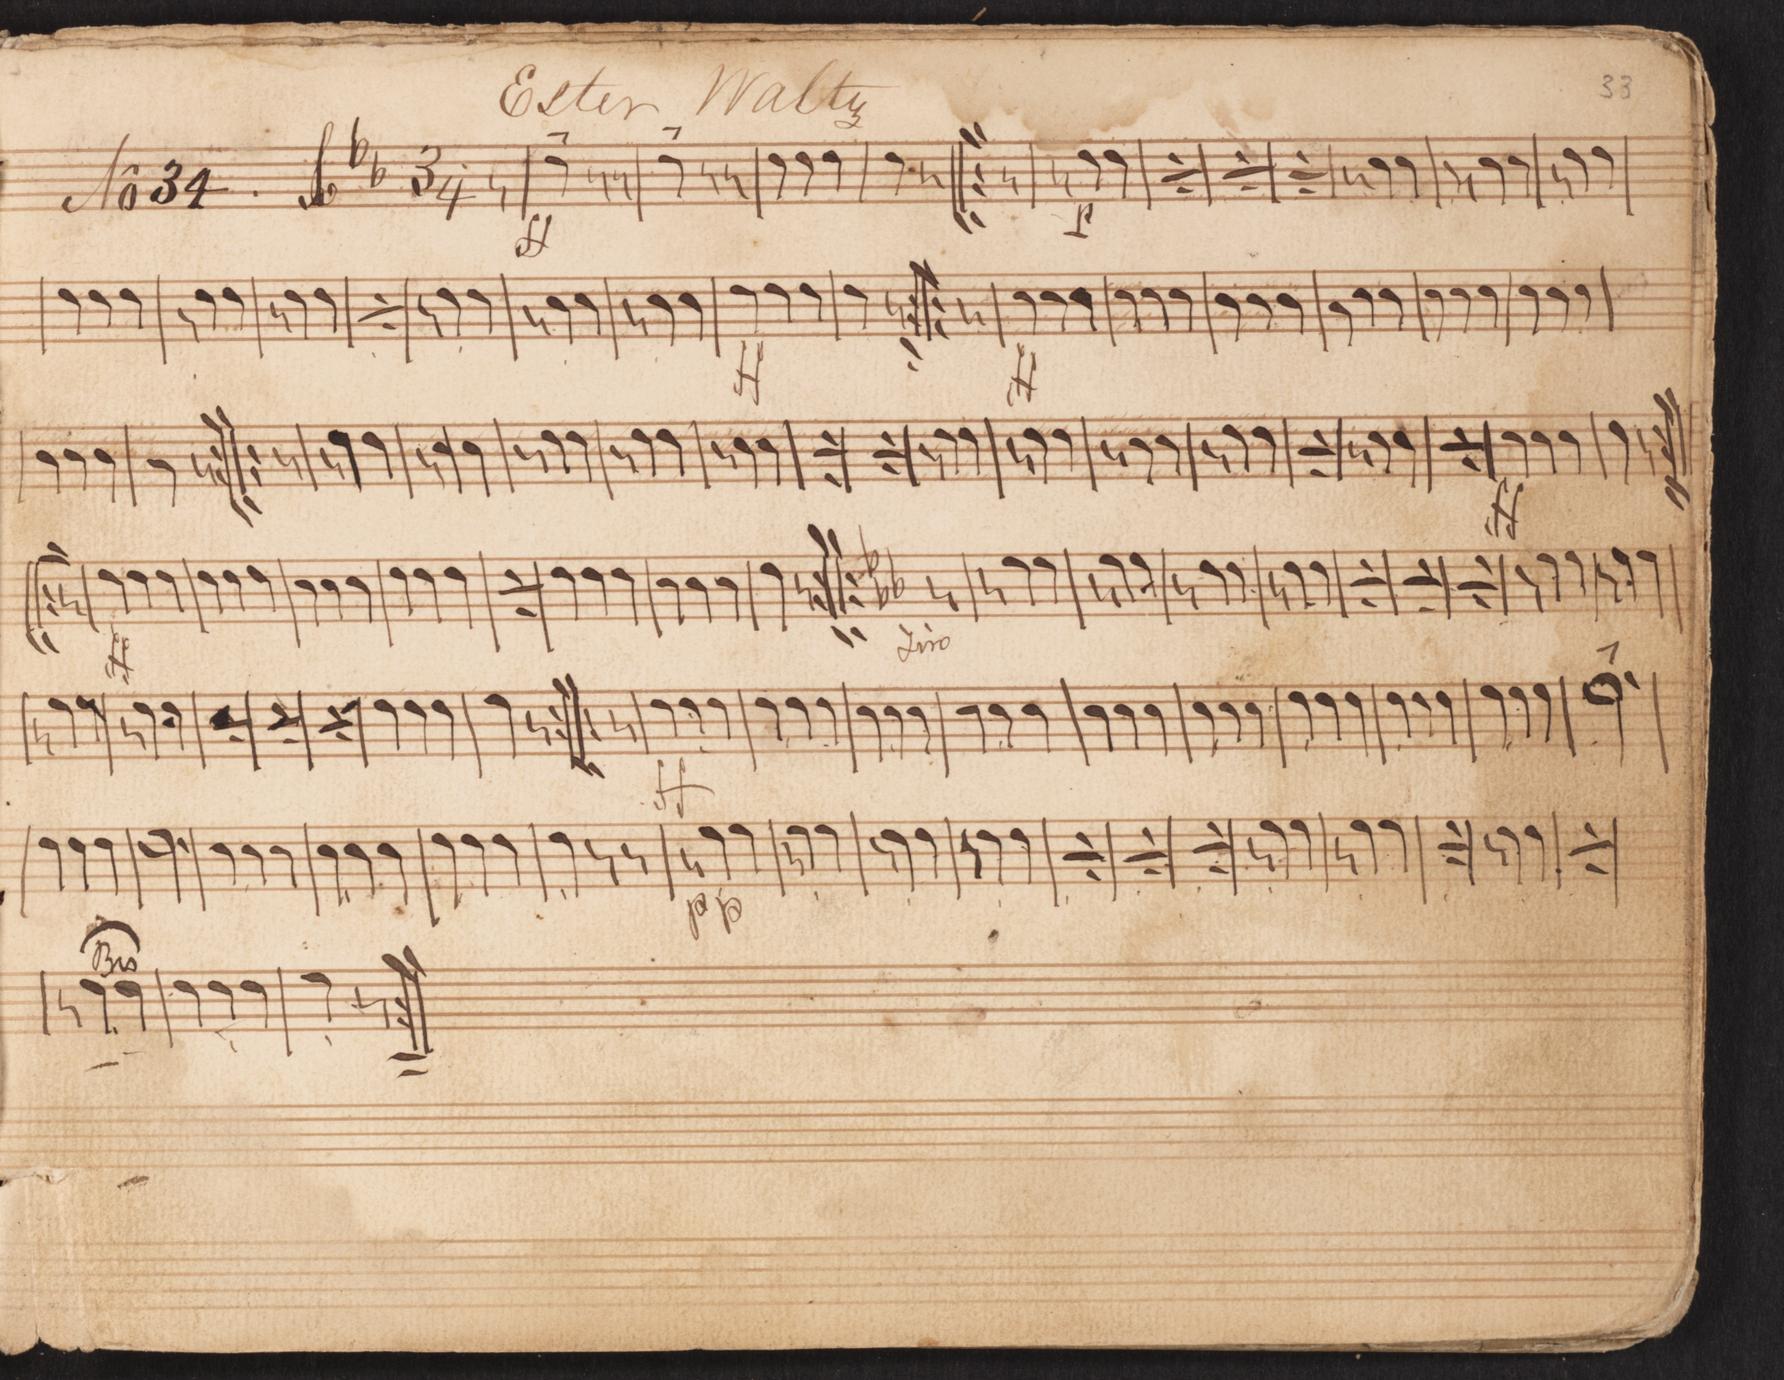 Ester Waltz
33
No 34. 3 4
ff p
ff ff
ff
ff Trio
ff
pp
Bis